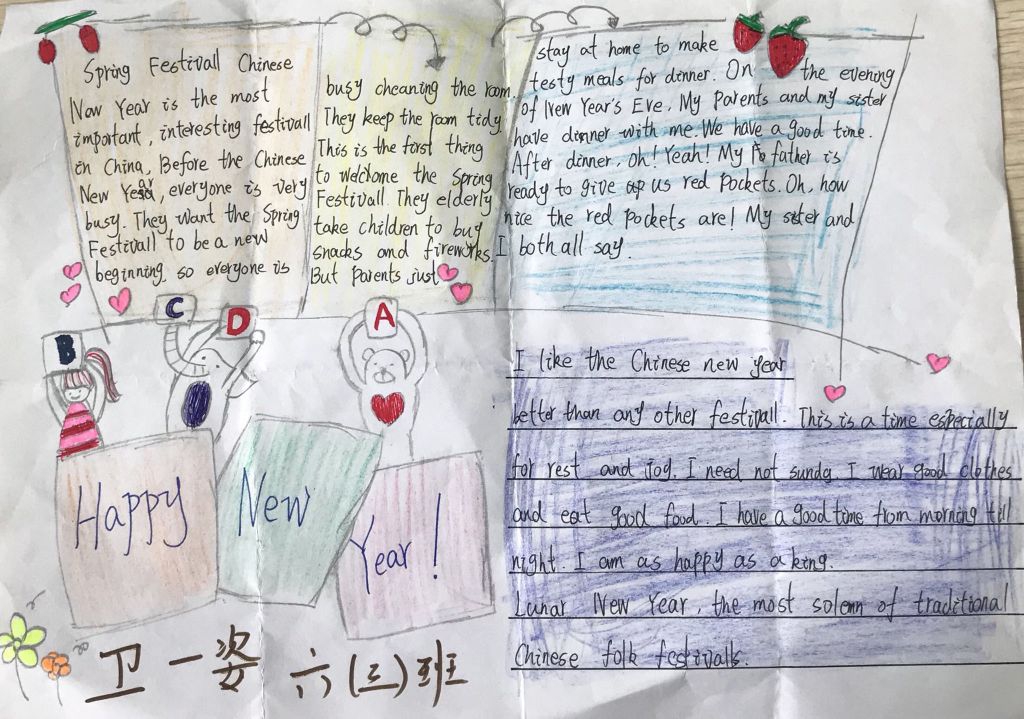 Spring Festivall Chinese
Now Year is the most
important, interesting festivall
in China, Before the Chinese
New Year, everyone is very
busy. They want the Spring
Festivall to be a new
beginning, so everyone is
busy cheaning the room.
They keep the room tidy.
This is the first thing
to welchome the Spring
Festivall. They elderly
take children to buy
snacks and fireworks.
But Parents just
stay at home to make
testy meals for dinner. On the evening
of New Year's Eve, My Parents and my sister
have dinner with me. We have a good time.
After dinner, oh! Yeah! My father is
ready to give up us red Pockets. Oh, how
nice the red pockets are! My sister and
I both all say.
B
C
D
A
Happy
New
Year!
I like the Chinese new year
better than any other festivall. This is a time especially
for rest and joy. I need not sundg. I wear good clothes
and eat good food. I have a good time from morning till
night. I am as happy as a king.
Lunar New Year, the most solemn of traditional
Chinese folk festivalls.
卫一姿 六(三)班